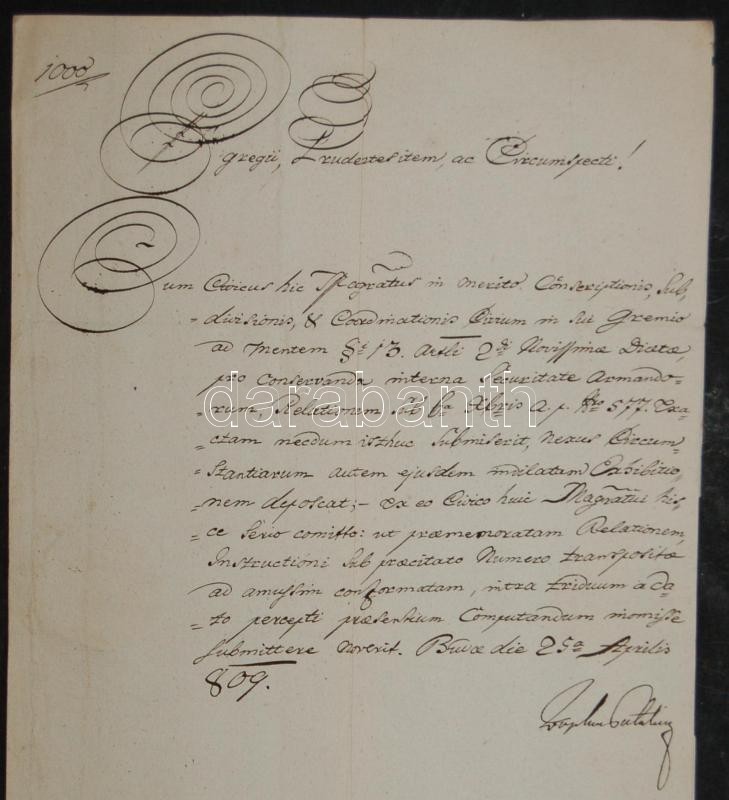 1000
Egregii, Prudentes item, ac Circumspecti!
Cum Civicus hic Magrãtus in merito Conscriptionis, Sub,
=divisionis, & Coordinationis Virum in sui Gremio
ad mentem §i 13. Artli 2di Novissimæ Diætæ,
pro conservanda interna Securitate Armando=
rum, Relationem sub 6a Xbris a. p. Nro 577. Exa=
=ctam necdum isthuc submiserit, nexus Circum=
=stantiarum autem ejusdem indilatam Exhibitio=
=nem deposcat; – ex eo Civico huic Magrãtui his=
=ce serio comitto: ut præmemoratam Relationem,
Instructioni sub præcitato Numero transpositæ
ad amussim conformatam, intra triduum a da=
=to percepti præsentium Computandum inomisse
submittere noverit. Budæ die 25a Aprilis
809.
darabanth